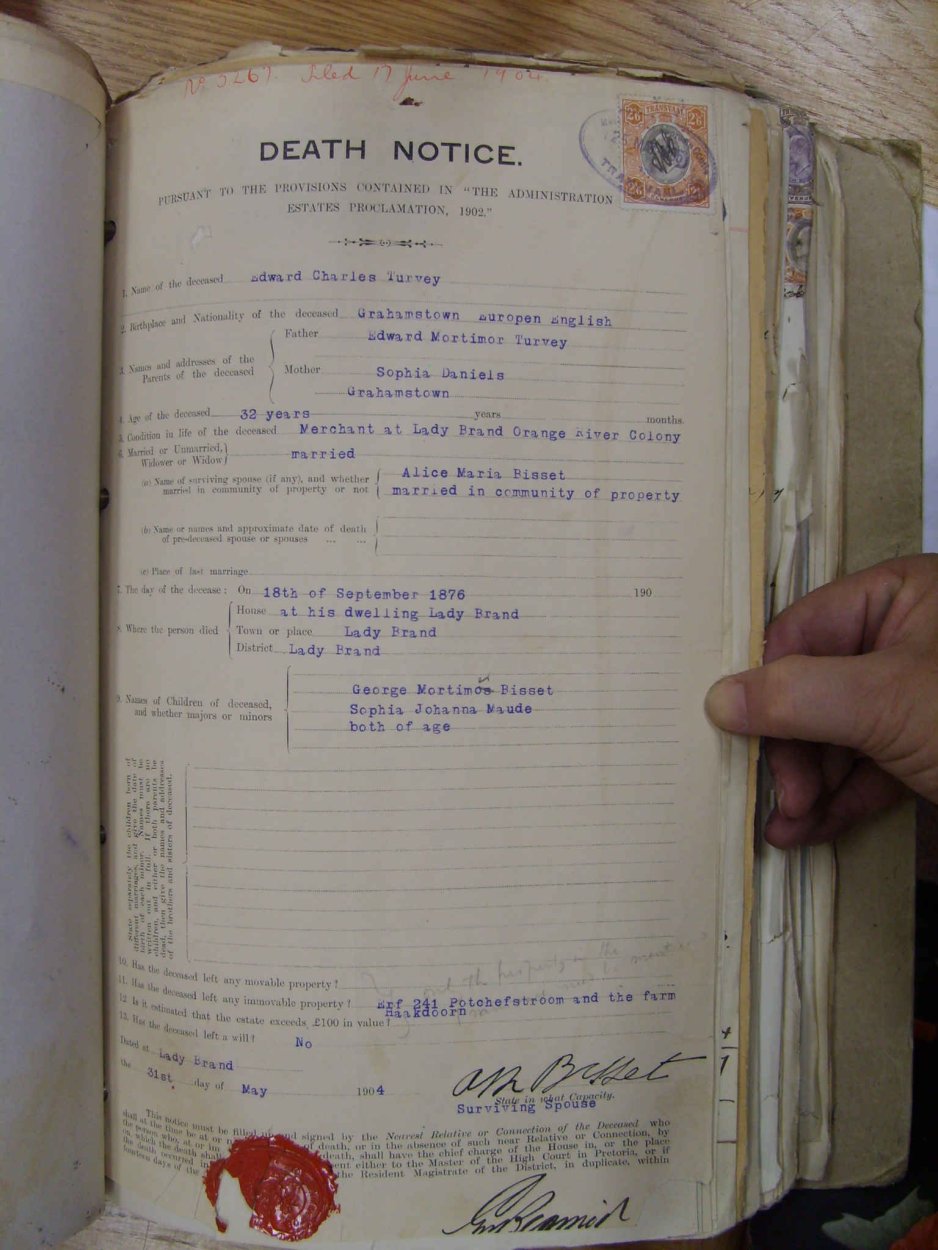 No 5267. Filed 17 June 1904.
TRANSVAAL
2/6 2/6
2/6 2/6
DEATH NOTICE.
PURSUANT TO THE PROVISIONS CONTAINED IN "THE ADMINISTRATION
ESTATES PROCLAMATION, 1902."
1. Name of the deceased Edward Charles Turvey
2. Birthplace and Nationality of the deceased Grahamstown Europen English
3. Names and addresses of the Parents of the deceased
Father Edward Mortimor Turvey
Mother Sophia Daniels
Grahamstown
4. Age of the deceased 32 years years months.
5. Condition in life of the deceased Merchant at Lady Brand Orange River Colony
6. Married or Unmarried, Widower or Widow married
(a) Name of surviving spouse (if any), and whether Alice Maria Bisset
married in community of property or not married in community of property
(b) Name or names and approximate date of death
of pre-deceased spouse or spouses ... ...
(c) Place of last marriage
7. The day of the decease: On 18th of September 1876 190
8. Where the person died
House at his dwelling Lady Brand
Town or place Lady Brand
District Lady Brand
9. Names of Children of deceased,
and whether majors or minors
George Mortimor Bisset
Sophia Johanna Maude
both of age
State separately the children born of
different marriages, and give the date of
birth of each minor. Names must be
written out in full. If there are no
children, and either or both parents be
dead, then give the names and addresses
of the brothers and sisters of deceased.
10. Has the deceased left any movable property?
11. Has the deceased left any immovable property? Erf 241 Potchefstroom and the farm
Haakdoorn
12. Is it estimated that the estate exceeds £100 in value?
13. Has the deceased left a will? No
Dated at Lady Brand
the 31st day of May 1904
Bisset
State in what Capacity.
Surviving Spouse
This notice must be filled and signed by the Nearest Relative or Connection of the Deceased who
shall at the time be at or of death, or in the absence of such near Relative or Connection, by
the person who, at or death, shall have the chief charge of the House in, or the place
in, which the death shall either to the Master of the High Court in Pretoria, or if
the death occurred in the Resident Magistrate of the District, in duplicate, within
fourteen days of the